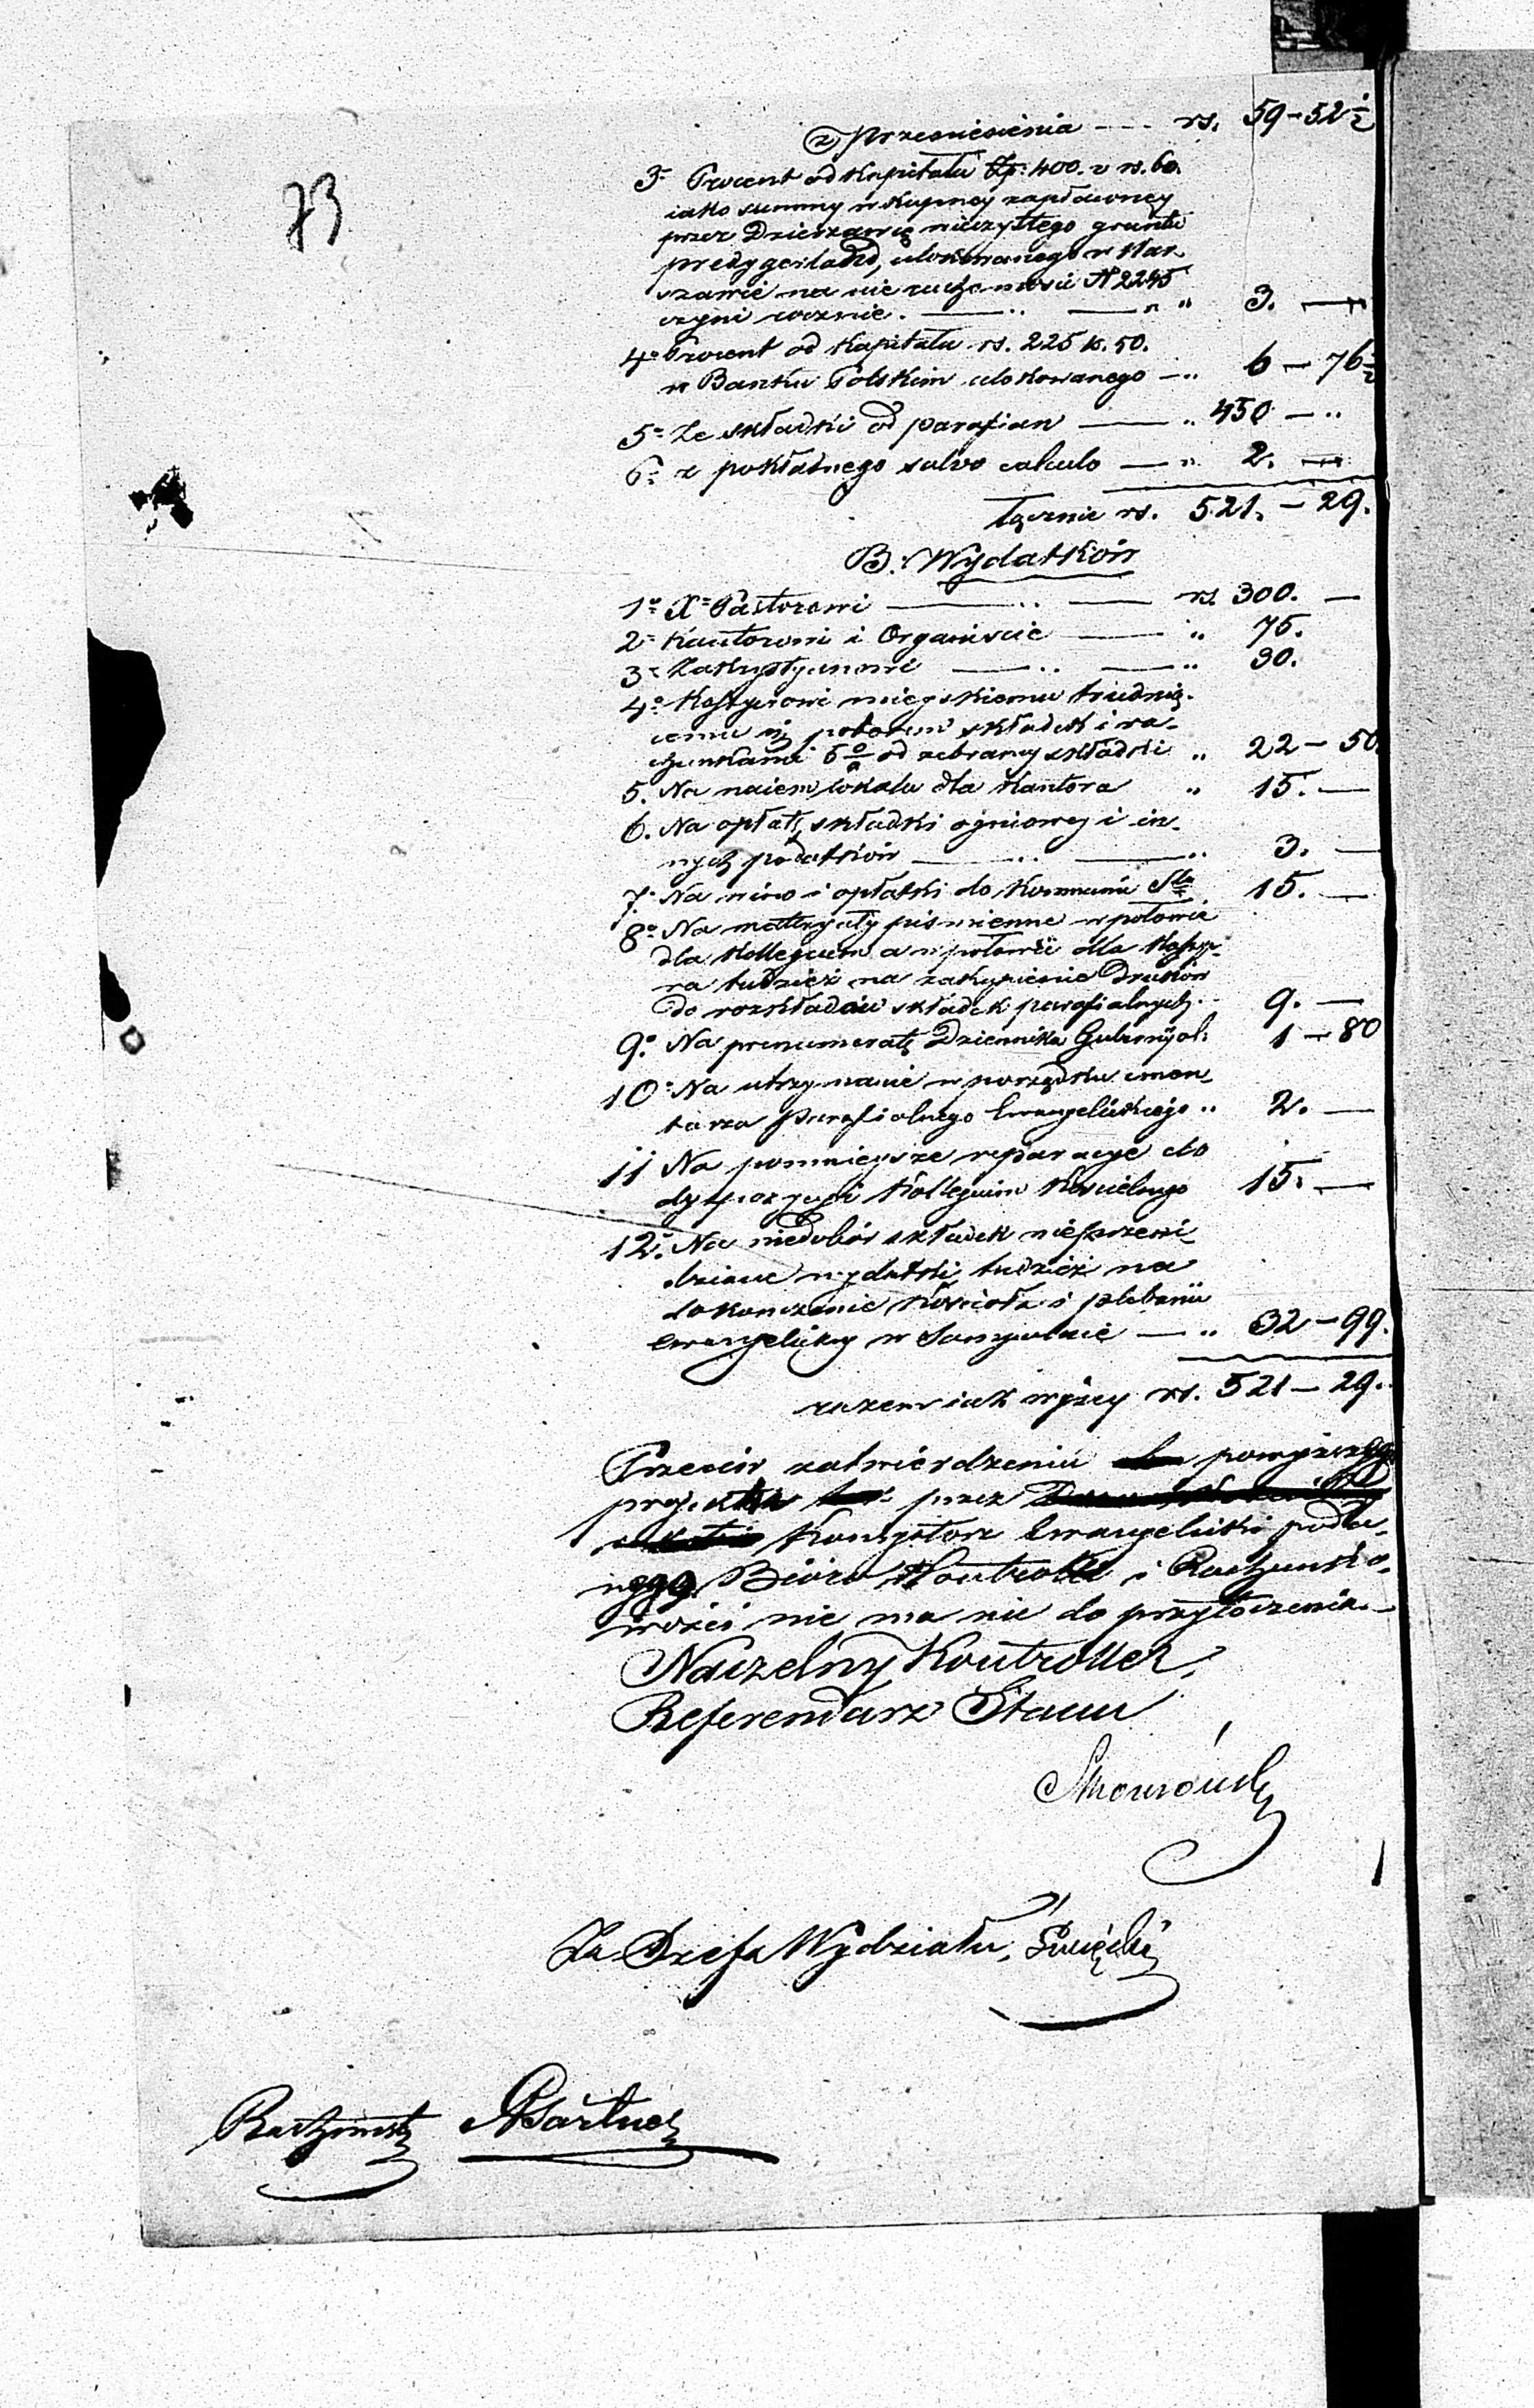 73
z Przeniesienia — rs. 59-52½
3° Procent od Kapitału Złp: 400. v rs. 60.
iako summy wkupney zapłaconey
przez Dzierzawcę wieczystego gruntu
ulokowanego w War
szawie na nieruchomości N 2245
czyni rocznie. — „ 3. —
4° Procent od Kapitału rs. 225 k. 50.
w Banku Polskim ulokowanego — „ 6 - 76½
5° Ze składki od parafian — „ 450 — „
6° z pokładnego salvo calculo — „ 2. —
łącznie rs. 521. - 29.
B. Wydatków
1° X° Pastorowi — rs. 300. —
2° Kantorowi i Organiście — „ 75.
3° Zakrystyanowi — „ 30.
4° Kassyerowi mieyskiemu trudnią-
cemu się poborem składek i ra-
chunkami 5% od zebraney składki „ 22 - 50
5. Na naiem lokalu dla Kantora „ 15. —
6. Na opłatę składki ogniowey i in-
nych podatków — „ 3. —
7. Na wino i opłatki do Kommunii Stey 15. —
8° Na matteryały piśmienne w połowie
dla Kollegium a w połowie dla Kassye-
ra tudzież na zakupienie Druków
do rozkładów składek parafialnych. 9. —
9° Na prenumeratę Dziennika Gubernyal: 1 - 80
10° Na utrzymanie w porządku cmen-
tarza Parafialnego Ewangelickiego „ 2. —
11 Na pomnieysze reparacye do
dyspozycyi Kollegium Kościelnego 15. —
12. Na niedobór składek nieprzewi-
dziane wydatki, tudzież na
dokończenie Kościoła i plebanii
ewangelickiey w Sompolnie — „ 32 - 99.
razem iak wyżey rs. 521 - 29.
Przeciw zatwierdzeniu powyższego
projektu przez
Konsystorz Ewangelicki poda-
nego, Biuro Kontroli i Rachunko-
wości nie ma nic do przytoczenia.—
Naczelny Kontroller,
Referendarz Stanu
Za Szefa Wydziału, Święcki